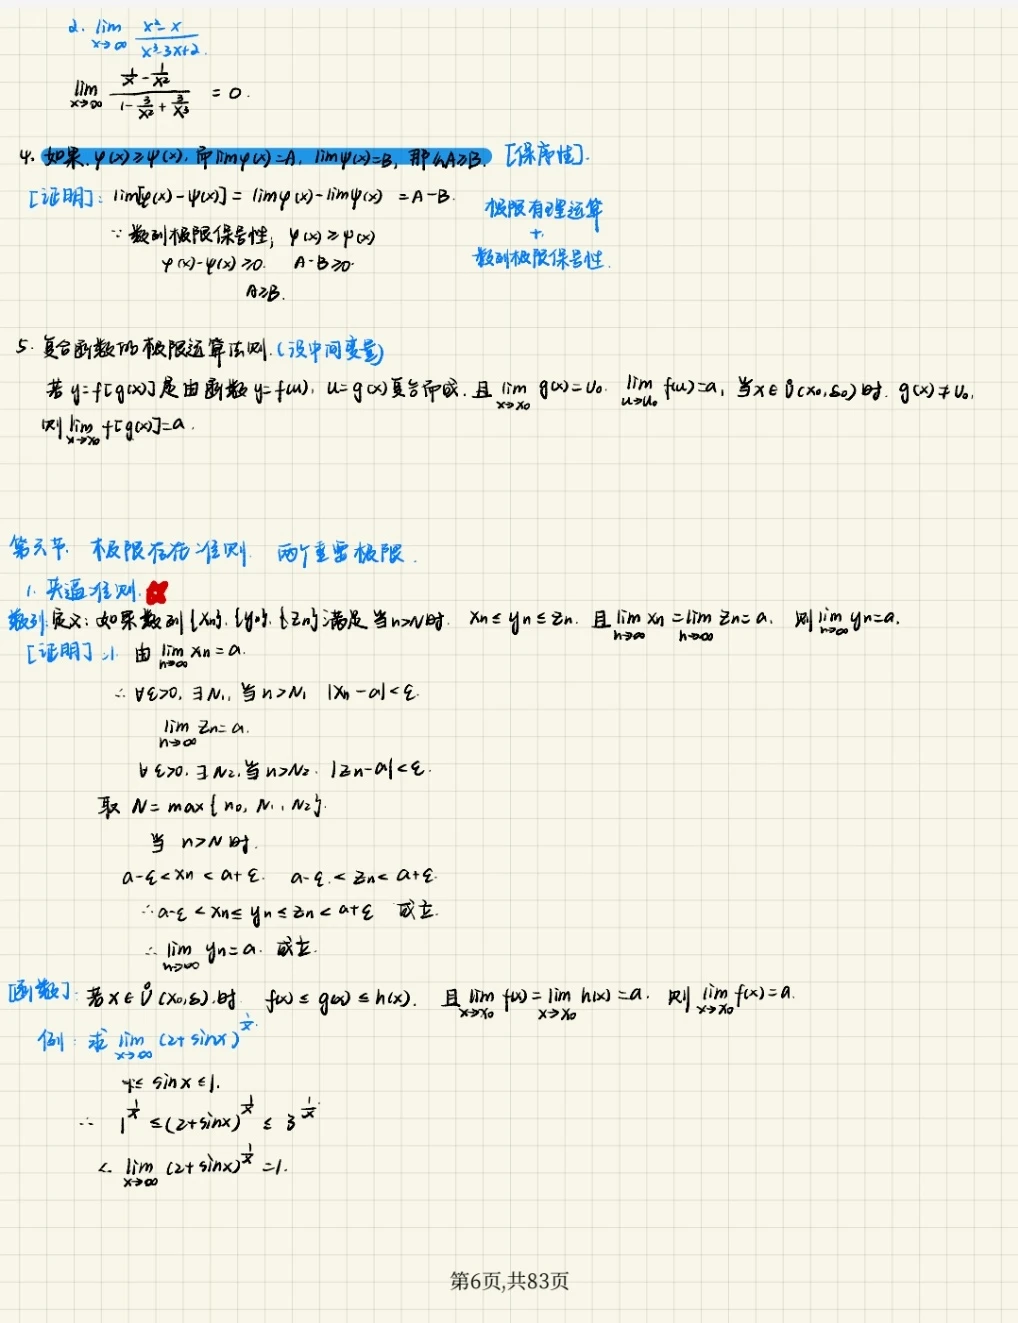 2. lim x→∞ (x²-x)/(x³-3x+2).
lim x→∞ (1/x - 1/x²)/(1 - 3/x² + 2/x³) = 0.
4. 如果 φ(x)≥ψ(x), 而limφ(x)=A, limψ(x)=B, 那么A≥B. [保序性].
[证明]: lim[φ(x)-ψ(x)] = limφ(x)-limψ(x) = A-B.
极限有理运算
+
数列极限保号性.
∵ 数列极限保号性, φ(x)≥ψ(x)
φ(x)-ψ(x)≥0. A-B≥0.
A≥B.
5. 复合函数的极限运算法则.(设中间变量)
若y=f[g(x)]是由函数y=f(u), u=g(x)复合而成. 且 lim x→x₀ g(x)=u₀. lim u→u₀ f(u)=a, 当x∈Ů(x₀,δ₀)时. g(x)≠u₀,
则 lim x→x₀ f[g(x)]=a.
第六节. 极限存在准则. 两个重要极限.
1. 夹逼准则.
数列: 定义: 如果数列{xn}. {yn}. {zn}满足当n>N时. xn≤yn≤zn. 且 lim n→∞ xn = lim n→∞ zn=a. 则 lim n→∞ yn=a.
[证明]: 由 lim n→∞ xn=a.
∴ ∀ε>0, ∃N₁, 当n>N₁ |xn-a|<ε.
lim n→∞ zn=a.
∀ε>0. ∃N₂, 当n>N₂. |zn-a|<ε.
取 N=max{n₀, N₁, N₂}.
当 n>N时.
a-ε<xn<a+ε. a-ε<zn<a+ε.
∴ a-ε<xn≤yn≤zn<a+ε 成立.
∴ lim n→∞ yn=a. 成立.
[函数]: 若x∈Ů(x₀,δ).时 f(x)≤g(x)≤h(x). 且 lim x→x₀ f(x)= lim x→x₀ h(x)=a. 则 lim x→x₀ f(x)=a.
例: 求 lim x→∞ (2+sinx)^(1/x).
-1≤ sinx ≤1.
∴ 1^(1/x) ≤(2+sinx)^(1/x) ≤ 3^(1/x).
∴ lim x→∞ (2+sinx)^(1/x) =1.
第6页,共83页